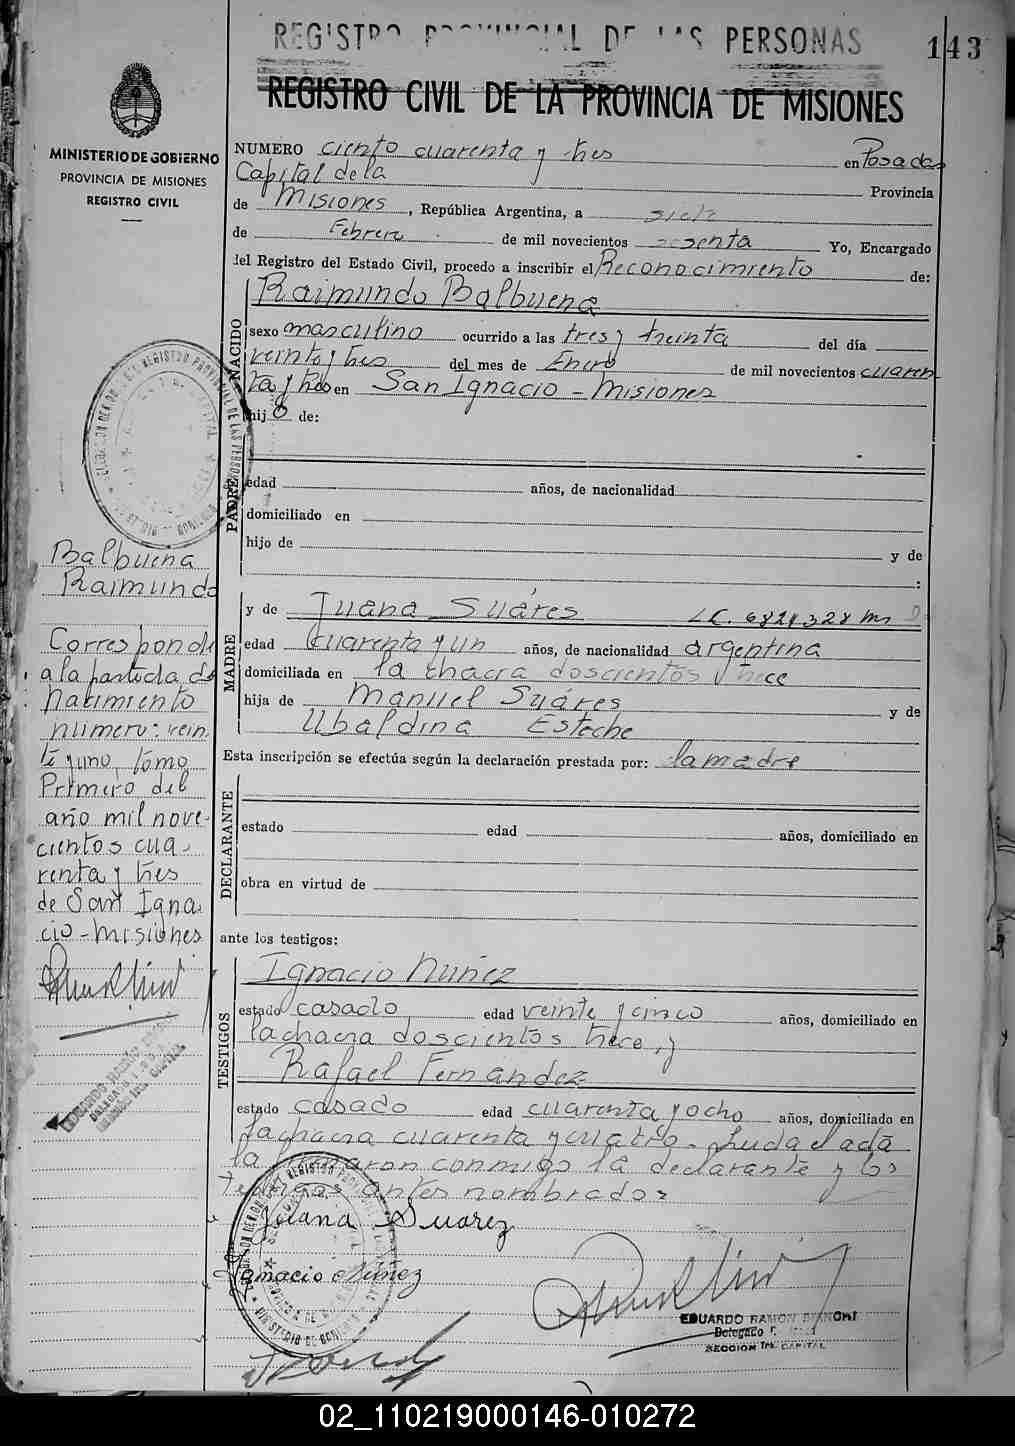 REGISTRO PROVINCIAL DE LAS PERSONAS
143
REGISTRO CIVIL DE LA PROVINCIA DE MISIONES
MINISTERIO DE GOBIERNO
PROVINCIA DE MISIONES
REGISTRO CIVIL
NUMERO ciento cuarenta y tres en Posadas
Capital de la Provincia
de Misiones, República Argentina, a siete
de Febrero de mil novecientos sesenta Yo, Encargado
del Registro del Estado Civil, procedo a inscribir el Reconocimiento de:
NACIDO
Raimundo Balbuena
sexo masculino ocurrido a las tres y treinta del día
veinte y tres del mes de Enero de mil novecientos cuaren
ta y tres en San Ignacio - Misiones
hijo de:
PADRE
edad años, de nacionalidad
domiciliado en
hijo de y de
:
MADRE
y de Juana Suáres LC. 6821328
edad cuarenta y un años, de nacionalidad argentina
domiciliada en la chacra doscientos trece
hija de Manuel Suáres y de
Ubaldina Esteche
Esta inscripción se efectúa según la declaración prestada por: la madre
DECLARANTE
estado edad años, domiciliado en
obra en virtud de
ante los testigos:
TESTIGOS
Ignacio Nuñez
estado casado edad veinte y cinco años, domiciliado en
la chacra doscientos trece, y
Rafael Fernandez
estado casado edad cuarenta y ocho años, domiciliado en
la chacra cuarenta y cuatro. Leida el acta
la firmaron conmigo la declarante y los
testigos antes nombrados
Juana Suarez
Ignacio Núñez
EDUARDO RAMON BIANCHI
Delegado
SECCION 1ra. CAPITAL
Balbuena
Raimundo
Corresponde
a la partida de
Nacimiento
número: vein
te y uno, tomo
Primero del
año mil nove-
cientos cua-
renta y tres
de San Igna-
cio - Misiones
02_110219000146-010272